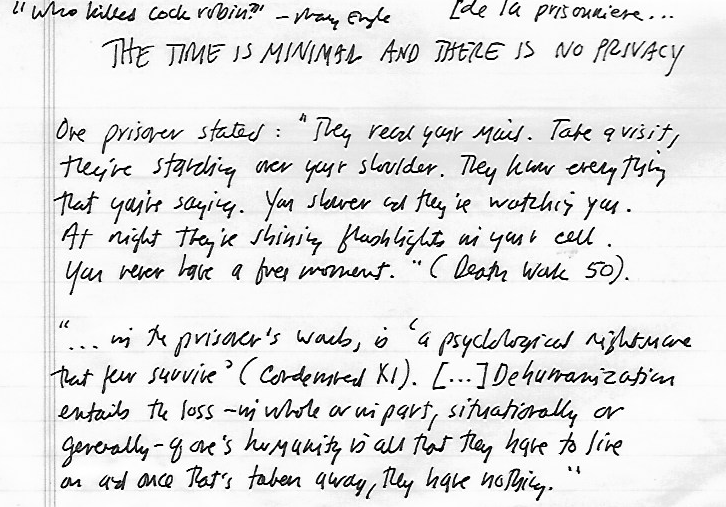 "Who killed cock robin?" – Mary Engle [de la prisonniere...
THE TIME IS MINIMAL AND THERE IS NO PRIVACY
One prisoner stated : "They read your mail. Take a visit,
they're standing over your shoulder. They know everything
that you're saying. You shower and they're watching you.
At night they're shining flashlights in your cell.
You never have a free moment." (Death Walk 50).
"... in the prisoner's words, is 'a psychological nightmare
that few survive' (Condemned XI). [...] Dehumanization
entails the loss – in whole or in part, situationally or
generally – of one's humanity is all that they have to live
on and once that's taken away, they have nothing."